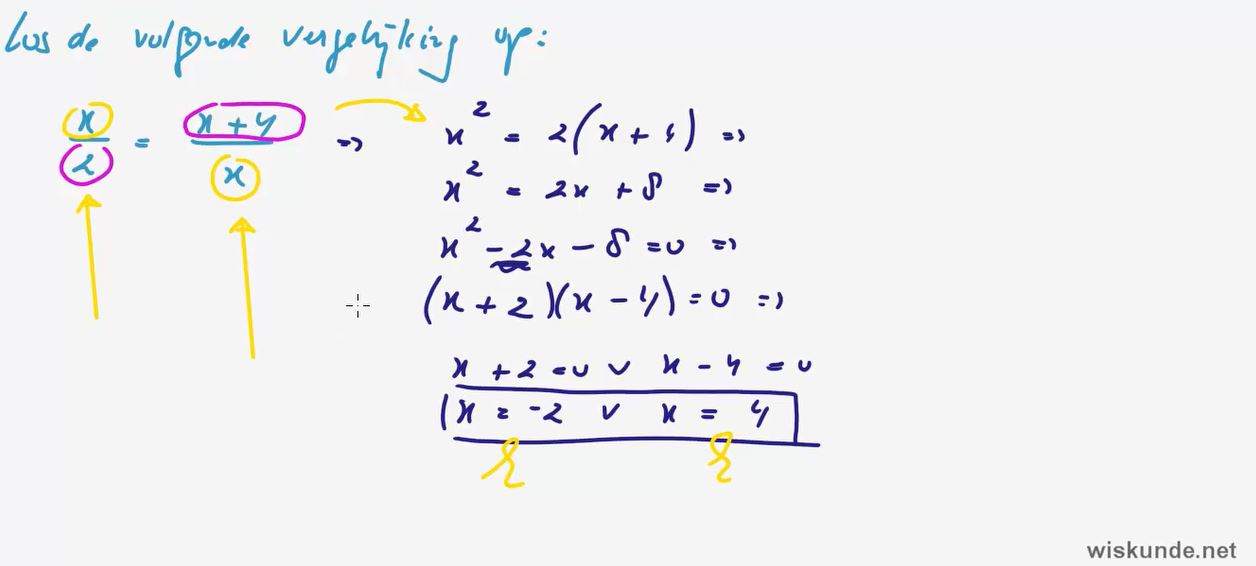 Los de volgende vergelijking op:
x/2 = (x + 4)/x => x² = 2(x + 4) =>
x² = 2x + 8 =>
x² - 2x - 8 = 0 =>
(x + 2)(x - 4) = 0 =>
x + 2 = 0 v x - 4 = 0
x = -2 v x = 4
wiskunde.net